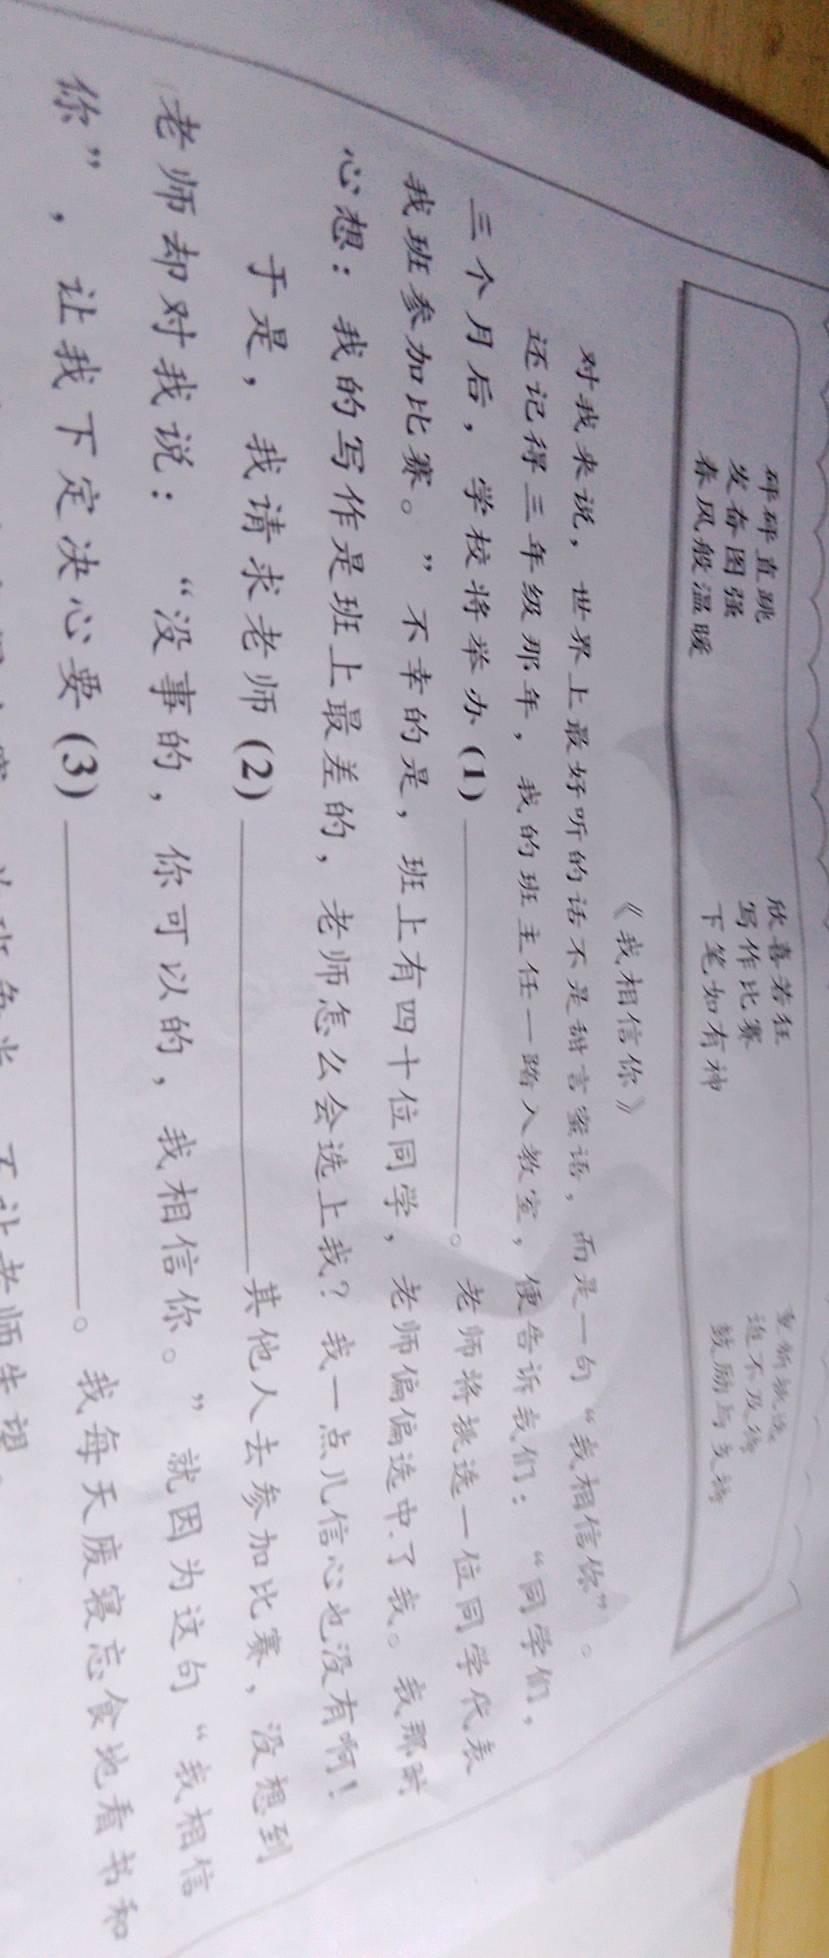 砰砰直跳 欣喜若狂 重新挑选
发奋图强 写作比赛 迫不及待
春风般温暖 下笔如有神 鼓励与支持
《我相信你》
对我来说，世界上最好听的话不是甜言蜜语，而是一句“我相信你”。
还记得三年级那年，我的班主任一踏入教室，便告诉我们：“同学们，
三个月后，学校将举办(1)____________。老师将挑选一位同学代表
我班参加比赛。”不幸的是，班上有四十位同学，老师偏偏选中了我。我那时
心想：我的写作是班上最差的，老师怎么会选上我？我一点儿信心也没有啊！
于是，我请求老师(2)____________其他人去参加比赛，没想到
老师却对我说：“没事的，你可以的，我相信你。”就因为这句“我相信
你”，让我下定决心要(3)____________。我每天废寝忘食地看书和